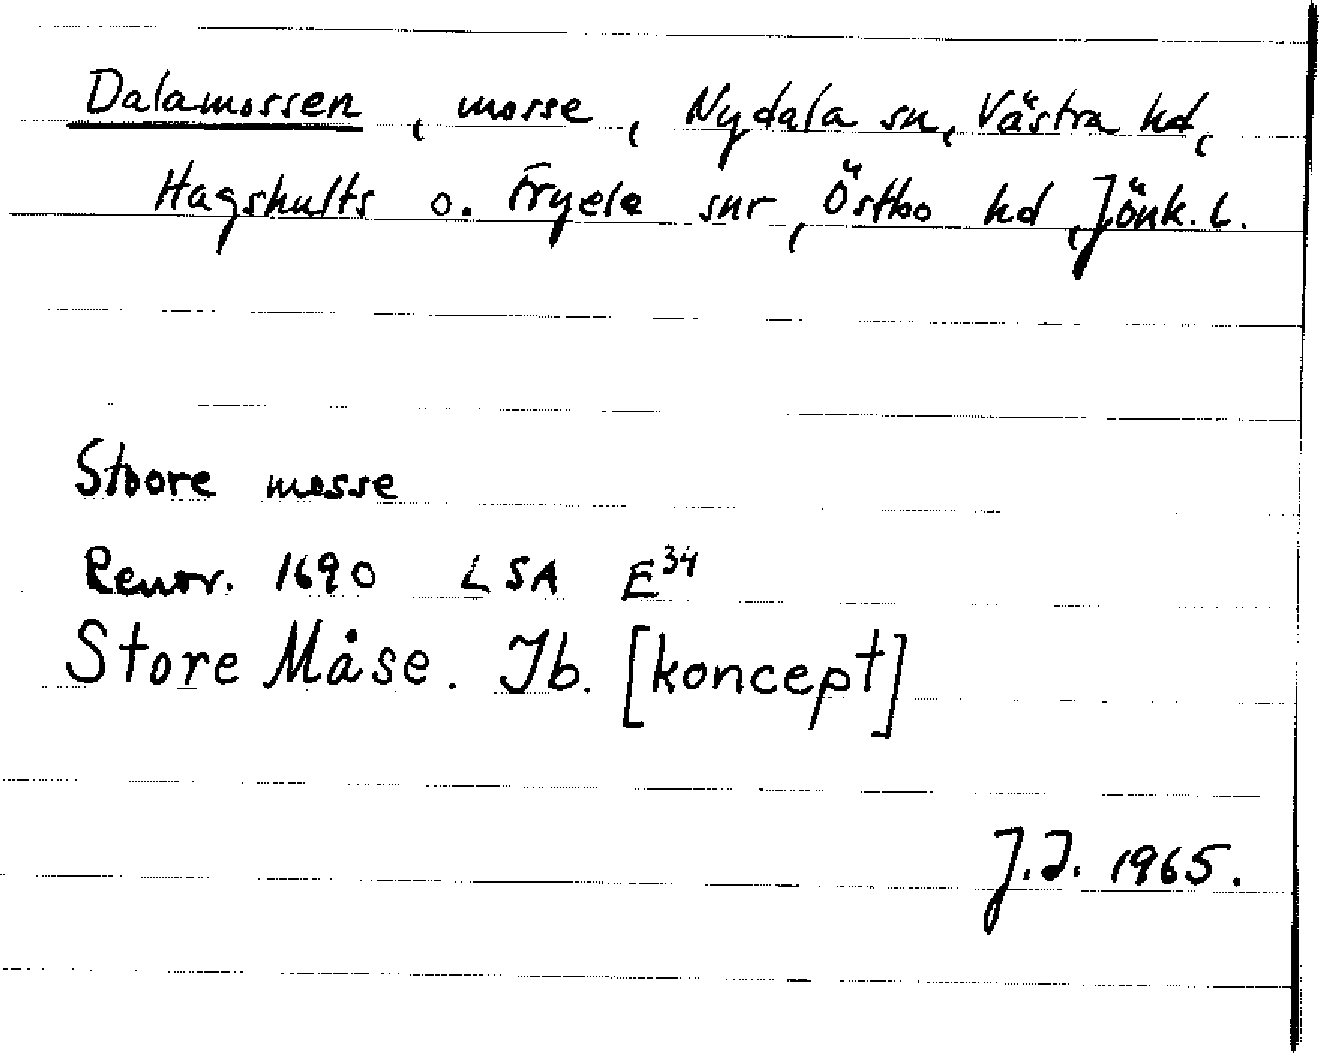 Dalamossen, mosse, Nydala sn, Västra hd,
Hagshults o. Fryele snr, Östbo hd, Jönk. l.
Stoore mosse
Renov. 1690 LSA E34
Store Måse. Ib. [koncept]
J.I. 1965.